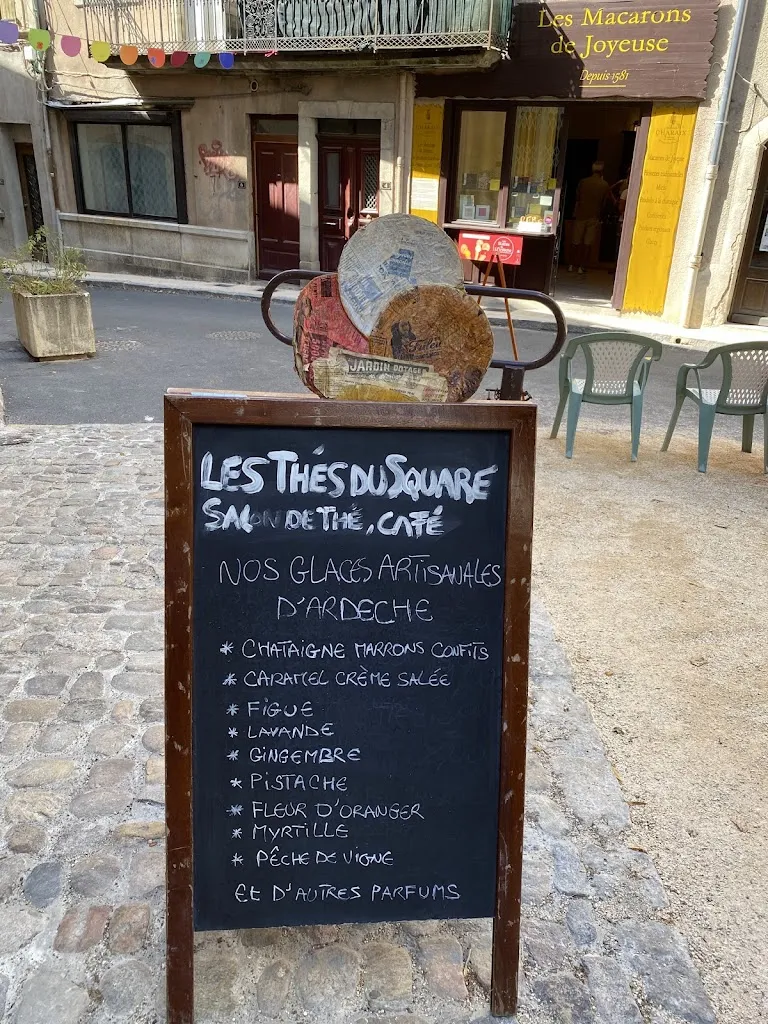 Les Macarons
de Joyeuse
Depuis 1581
CHABAIX
JARDIN POTAGER
LES THÉS DU SQUARE
SALON DE THÉ, CAFÉ
NOS GLACES ARTISANALES
D'ARDECHE
* CHATAIGNE MARRONS CONFITS
* CARAMEL CRÈME SALÉE
* FIGUE
* LAVANDE
* GINGEMBRE
* PISTACHE
* FLEUR D'ORANGER
* MYRTILLE
* PÊCHE DE VIGNE
ET D'AUTRES PARFUMS